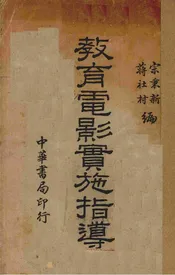 宗秉新
蔣社村 編
教育電影實施指導
中華書局印行